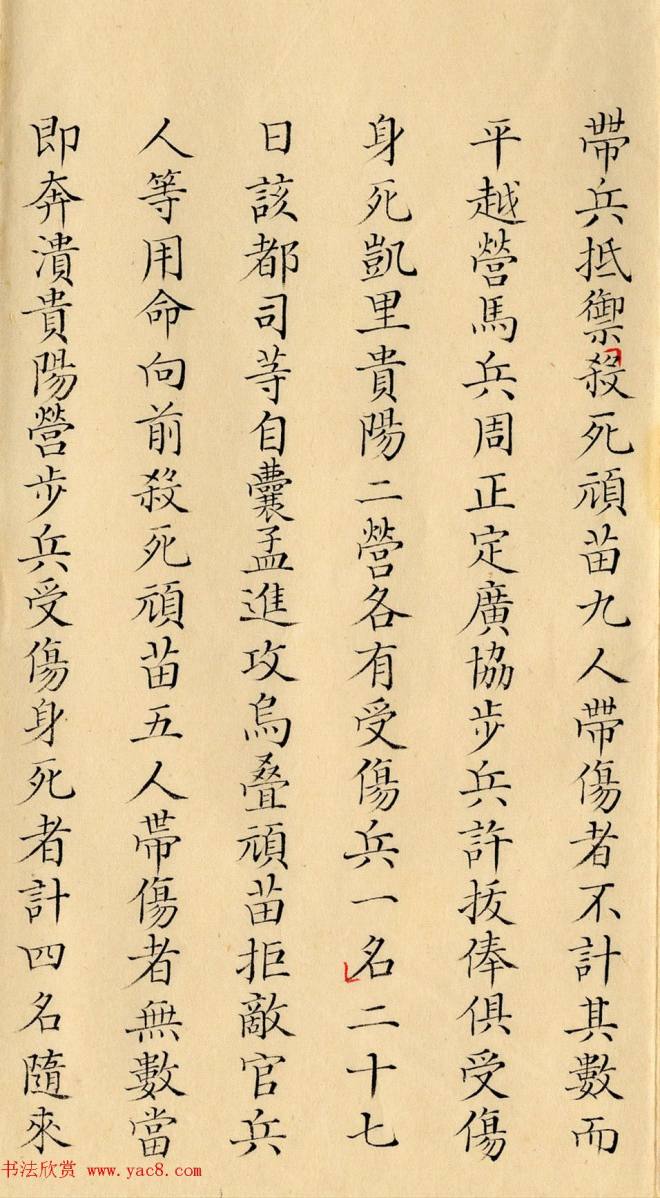 帶兵抵禦殺死頑苗九人帶傷者不計其數而
平越營馬兵周正定廣協步兵許拔俸俱受傷
身死凱里貴陽二營各有受傷兵一名二十七
日該都司等自囊孟進攻烏疊頑苗拒敵官兵
人等用命向前殺死頑苗五人帶傷者無數當
即奔潰貴陽營步兵受傷身死者計四名隨來
书法欣赏 www.yac8.com